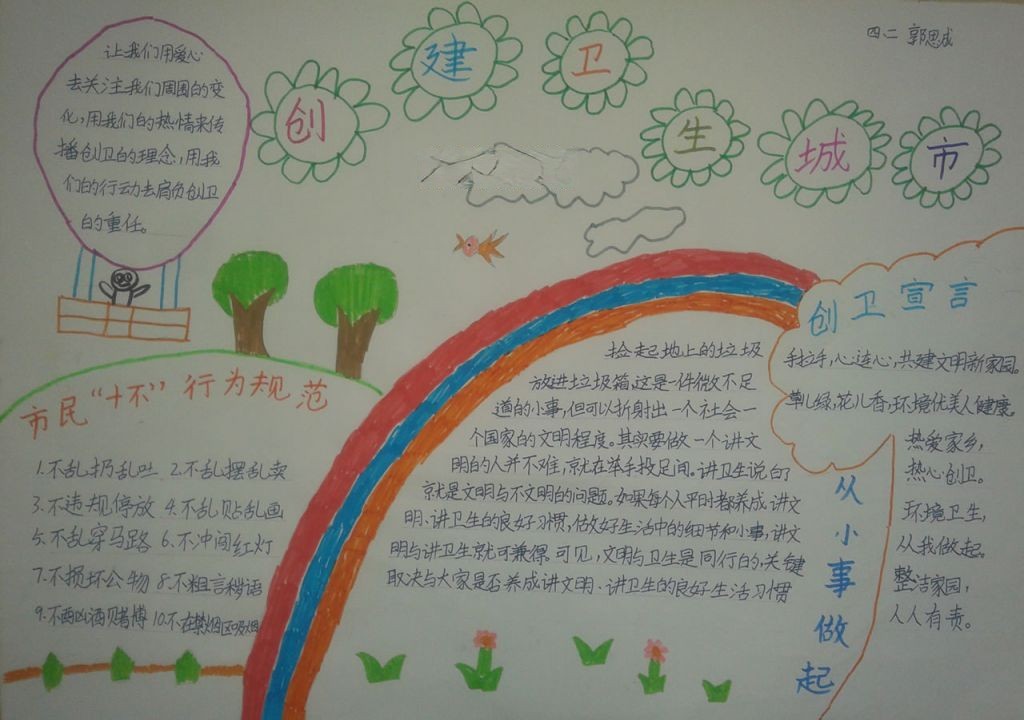 四二 郭思成
创建卫生城市
让我们用爱心
去关注我们周围的变
化,用我们的热情来传
播创卫的理念,用我
们的行动去肩负创卫
的重任。
市民“十不”行为规范
1.不乱扔乱吐 2.不乱摆乱卖
3.不违规停放 4.不乱贴乱画
5.不乱穿马路 6.不冲闯红灯
7.不损坏公物 8.不粗言秽语
9.不酗酒赌博 10.不在禁烟区吸烟
捡起地上的垃圾
放进垃圾箱,这是一件微不足
道的小事,但可以折射出一个社会一
个国家的文明程度。其实要做一个讲文
明的人并不难,就在举手投足间。讲卫生说白了
就是文明与不文明的问题。如果每个人平时都养成讲文
明、讲卫生的良好习惯,做好生活中的细节和小事,讲文
明与讲卫生就可兼得。可见,文明与卫生是同行的,关键
取决与大家是否养成讲文明、讲卫生的良好生活习惯
从小事做起
创卫宣言
手拉手,心连心,共建文明新家园。
草儿绿,花儿香,环境优美人健康。
热爱家乡,
热心创卫。
环境卫生,
从我做起。
整洁家园,
人人有责。